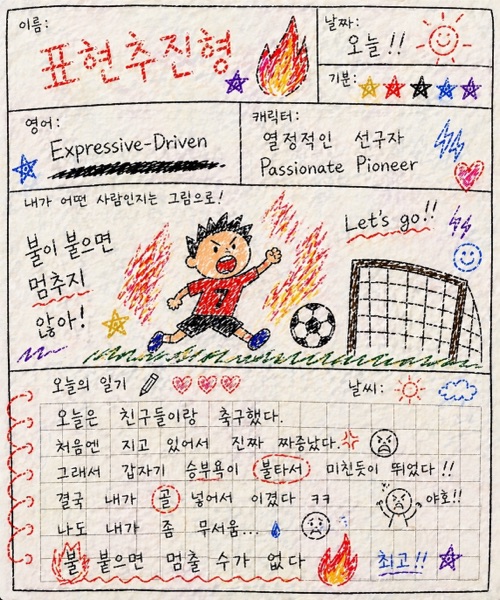 이름:
표현추진형
날짜:
오늘!!
기분:
영어:
Expressive-Driven
캐릭터:
열정적인 선구자
Passionate Pioneer
내가 어떤 사람인지는 그림으로!
불이 붙으면
멈추지
않아!
Let's go!!
7
오늘의 일기
날씨:
오늘은 친구들이랑 축구했다.
처음엔 지고 있어서 진짜 짜증났다.
그래서 갑자기 승부욕이 불타서 미친듯이 뛰었다!!
결국 내가 골 넣어서 이겼다 ㅋㅋ 야호!!
나도 내가 좀 무서움...
불 붙으면 멈출 수가 없다 최고!!